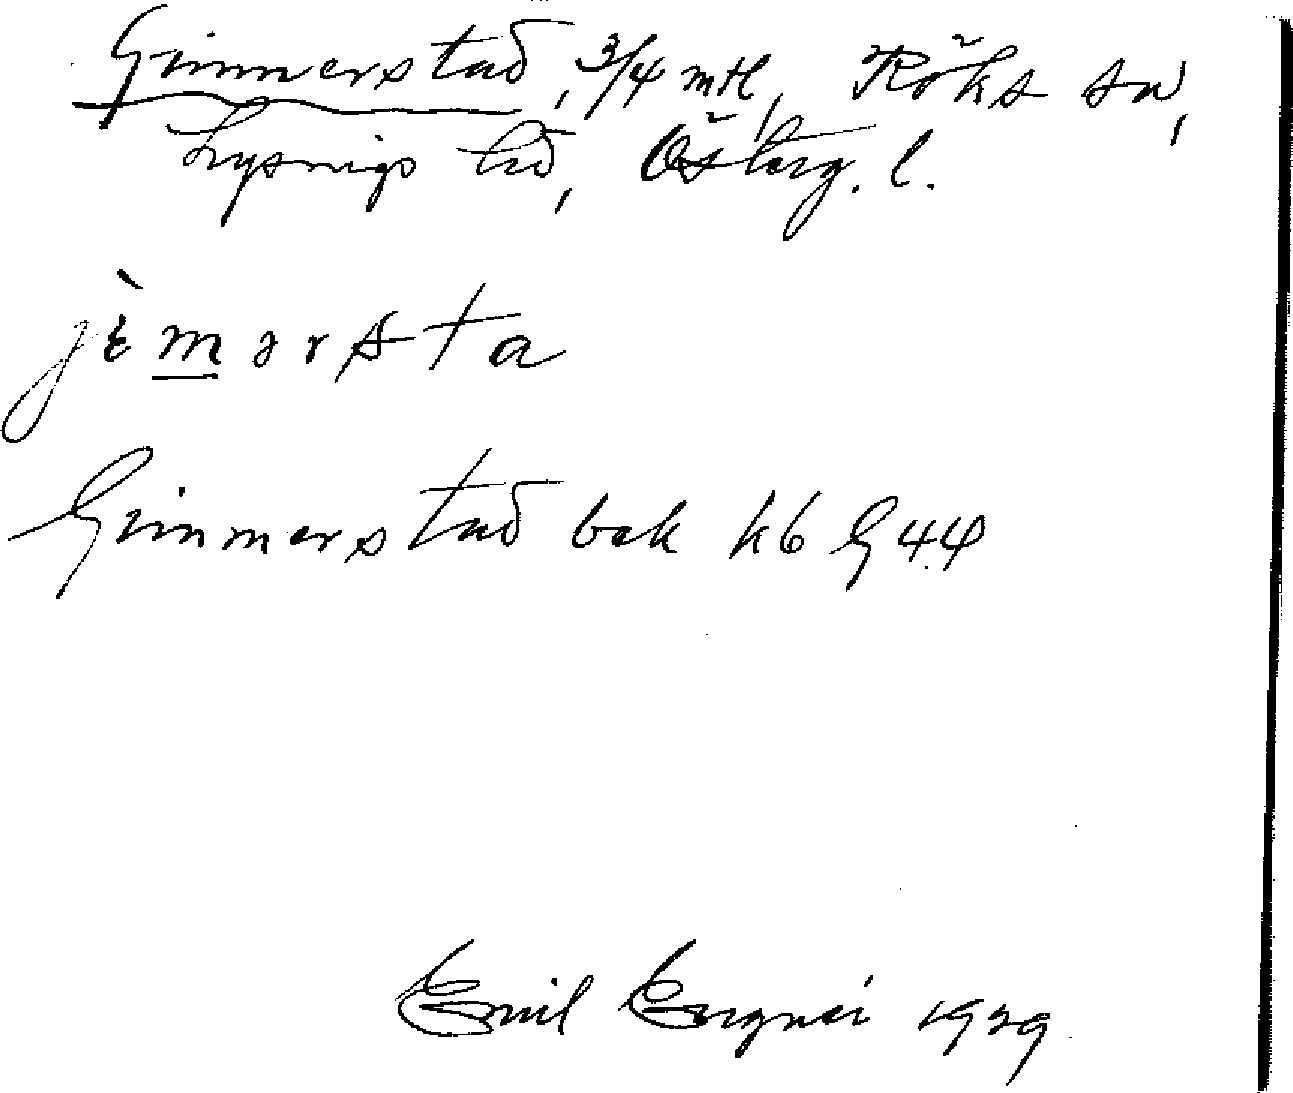 Gimmerstad, 3/4 mtl, Röks sn,
Lysings hd, Österg. l.
jèmərsta
Gimmerstad bek kb G 44
Emil 1929